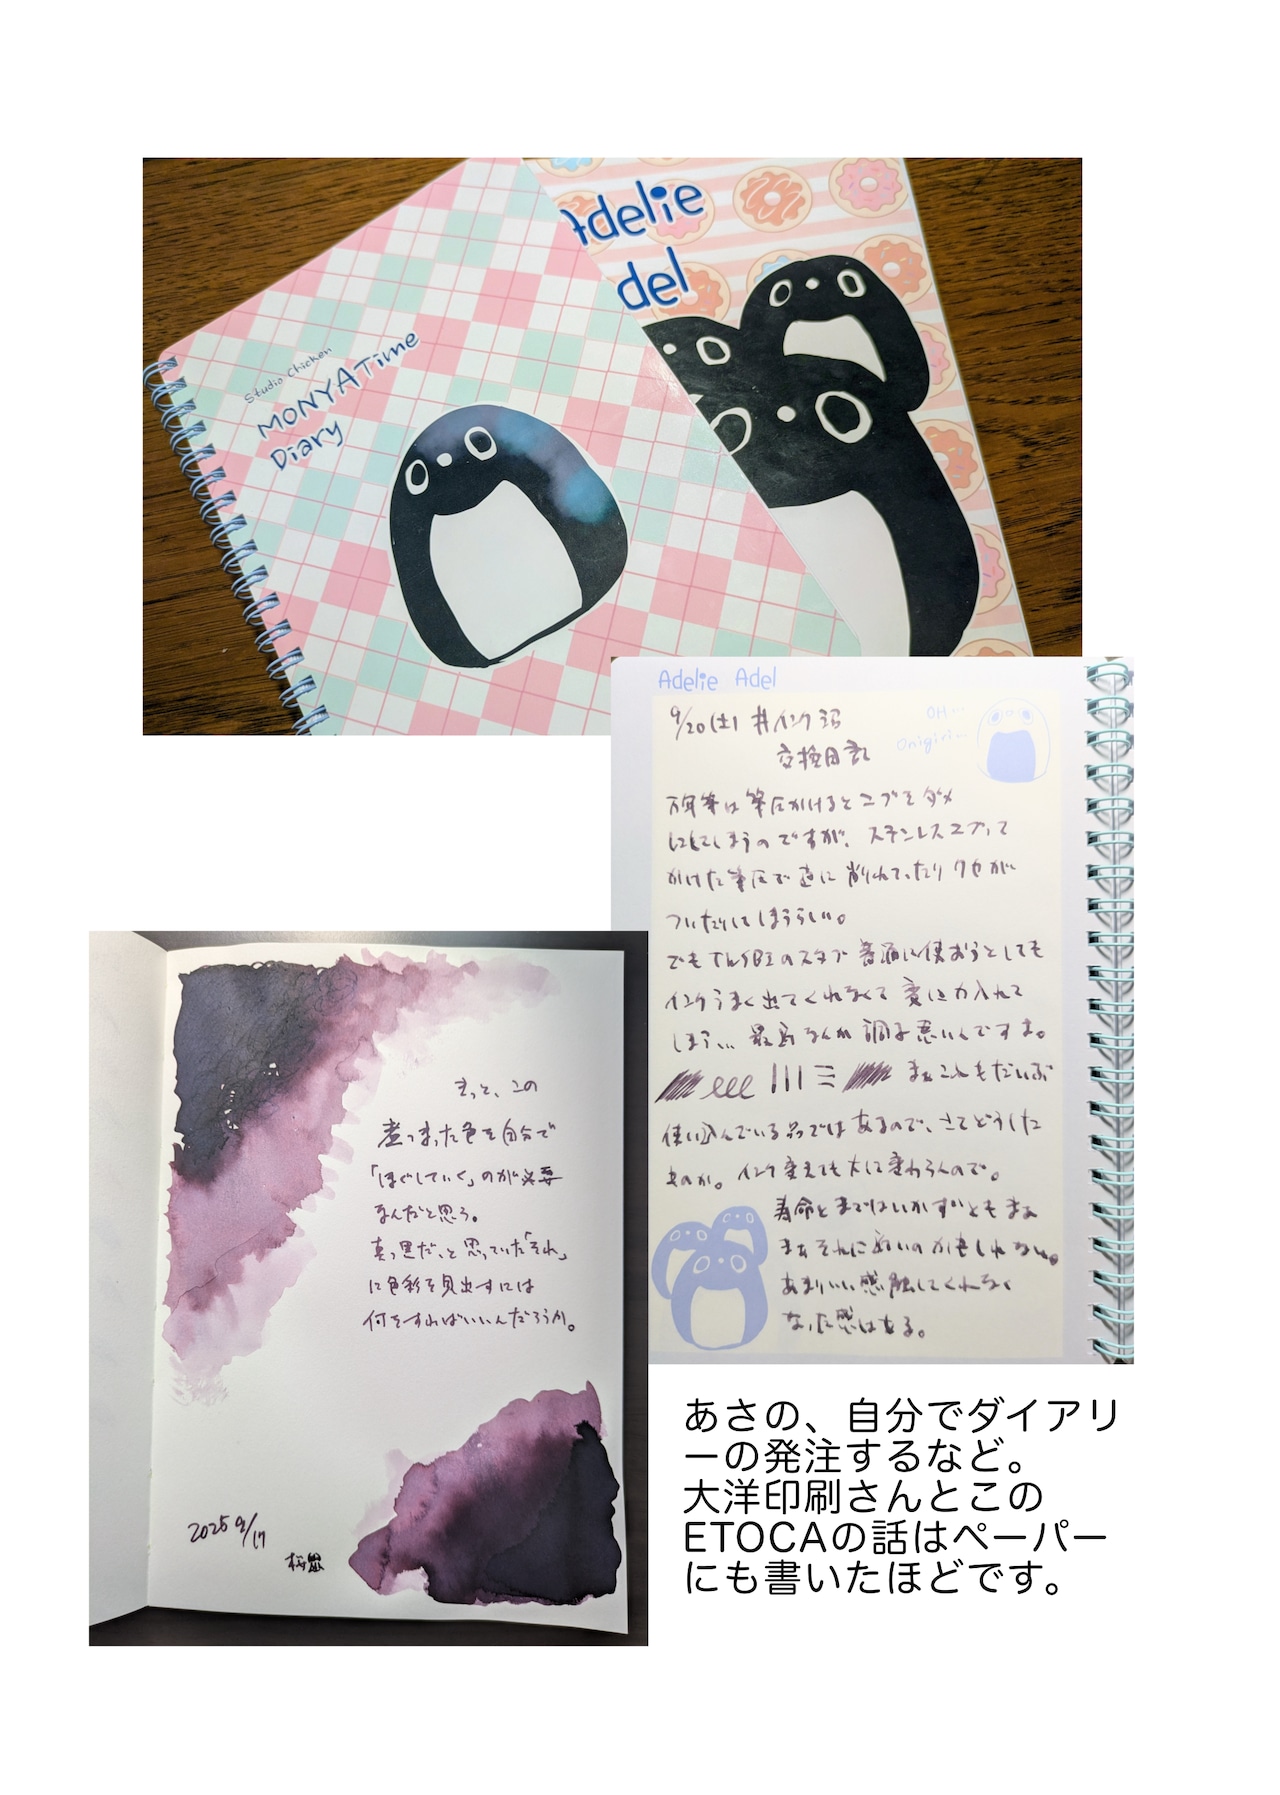 Adelie
del
Studio Chicken
MONYATime
Diary
Adelie Adel
9/20(土) #インク沼
交換日記
OH...
Onigiri...
万年筆は筆圧かけるとニブをダメ
にしてしまうのですが、ステンレスニブって
かけた筆圧で逆に削れてったりクセが
ついたりしてしまうらしい。
でもTWSBIのスタブ普通に使おうとしても
インクうまく出てくれなくて変に力入れて
しまう… 最近なんか調子悪いんですよ。
まぁこれもだいぶ
使い込んでいる品ではあるので、さてどうした
ものか。インク変えても大して変わらんので。
寿命とまではいかずともまぁ
まぁそれに近いのかもしれない。
あまりいい感触してくれなく
なった感はある。
きっと、この
煮つまった色を自分で
「ほぐしていく」のが必要
なんだと思う。
真っ黒だ、と思っていた「それ」
に色彩を見出すには
何をすればいいんだろうか。
2025 9/17
あさの、自分でダイアリ
ーの発注するなど。
大洋印刷さんとこの
ETOCAの話はペーパー
にも書いたほどです。